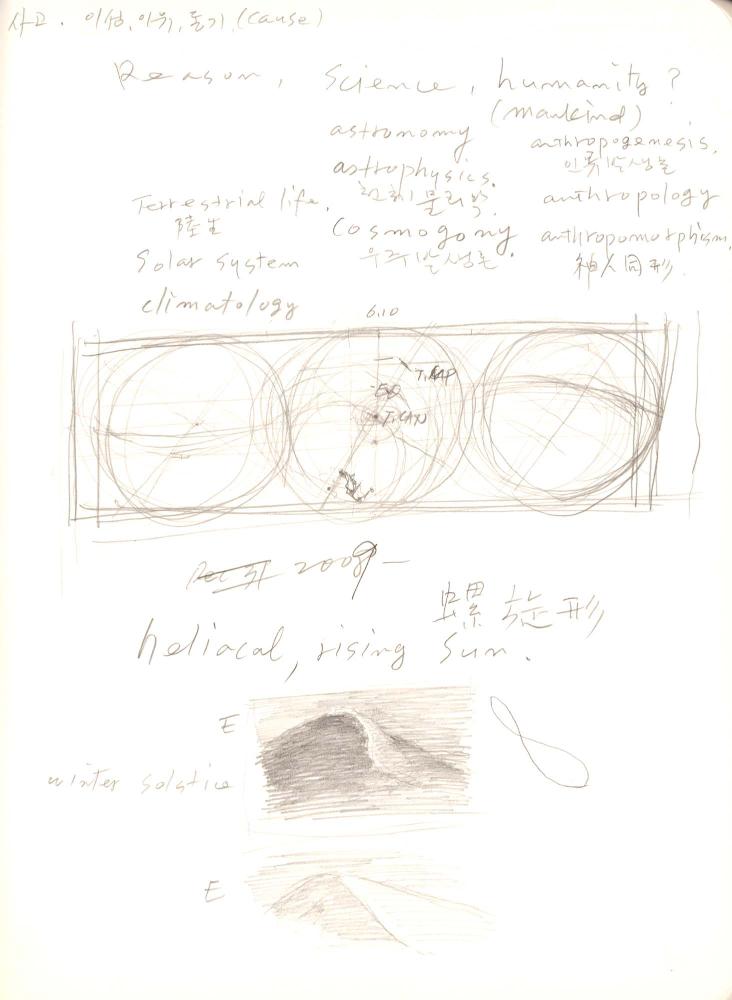 사고. 이성, 이유, 동기, (cause)
Reason, Science, humanity?
(mankind)
astronomy anthropogenesis.
인류발생론
astrophysics.
천체물리학.
Terrestrial life. anthropology
陸生
Cosmogony anthropomorphism
우주발생론. 神人同形.
Solar system
climatology
6.10
T.CAP
EQ
T.CAN
2009-
螺旋形
heliacal, rising Sun.
E
winter solstice
E